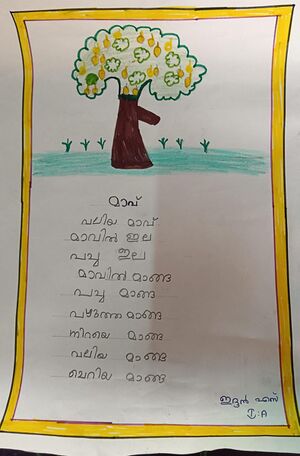 മാവ്
വലിയ മാവ്
മാവിൽ ഇല
പച്ച ഇല
മാവിൽ മാങ്ങ
പച്ച മാങ്ങ
പഴുത്ത മാങ്ങ
നിറയെ മാങ്ങ
വലിയ മാങ്ങ
ചെറിയ മാങ്ങ
എസ്
I:A